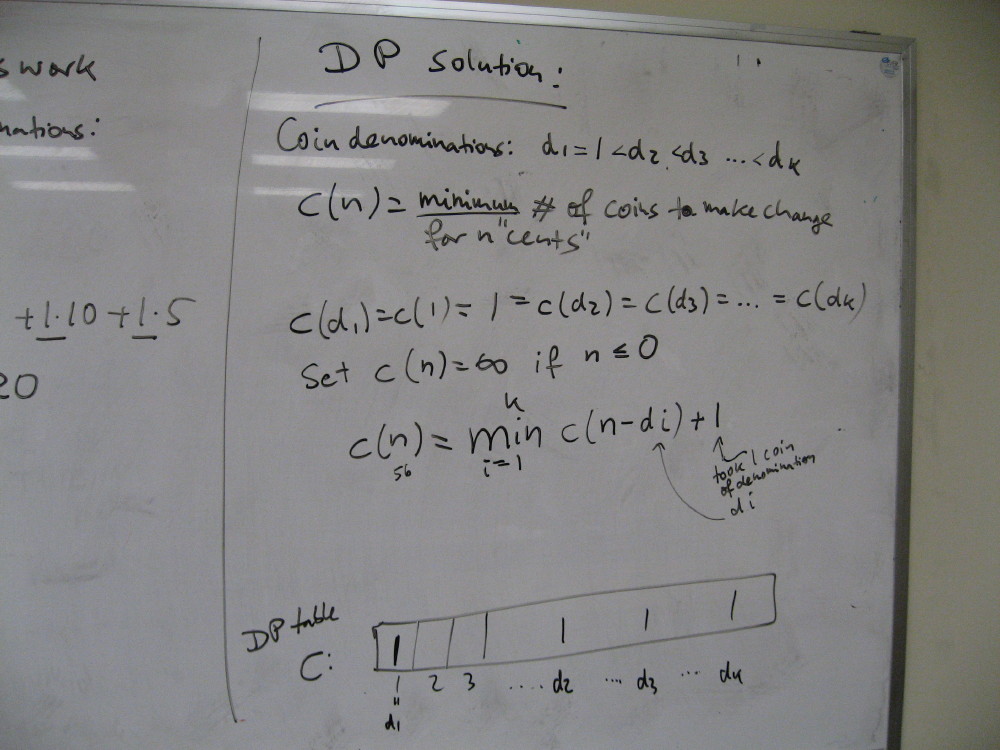 s work
nations:
+1·10 +1·5
20
DP solution:
Coin denominations: d1=1<d2<d3 ...<dk
C(n) = minimum # of coins to make change
for n "cents"
C(d1)=c(1)= 1 = c(d2) = c(d3) = ... = c(dk)
Set c(n)=∞ if n ≤ 0
k
c(n) = min c(n-di)+1
56 i=1
took 1 coin
of denomination
di
DP table
C: 1 1 1 1
1 2 3 .... d2 ... d3 ... dk
"
d1